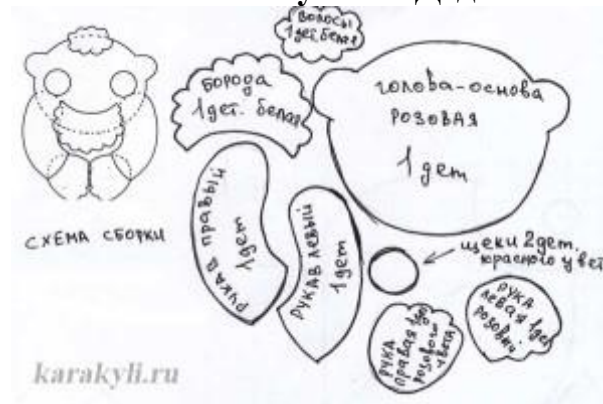 волосы
1 дет. белая
борода
1 дет. белая
голова-основа
розовая
1 дет
рукав правый
1 дет
рукав левый
1 дет
схема сборки
щеки 2 дет.
красного цвет
рука
левая 1 дет
розовый
рука
правая 1 дет
розового
цвета
karakyli.ru